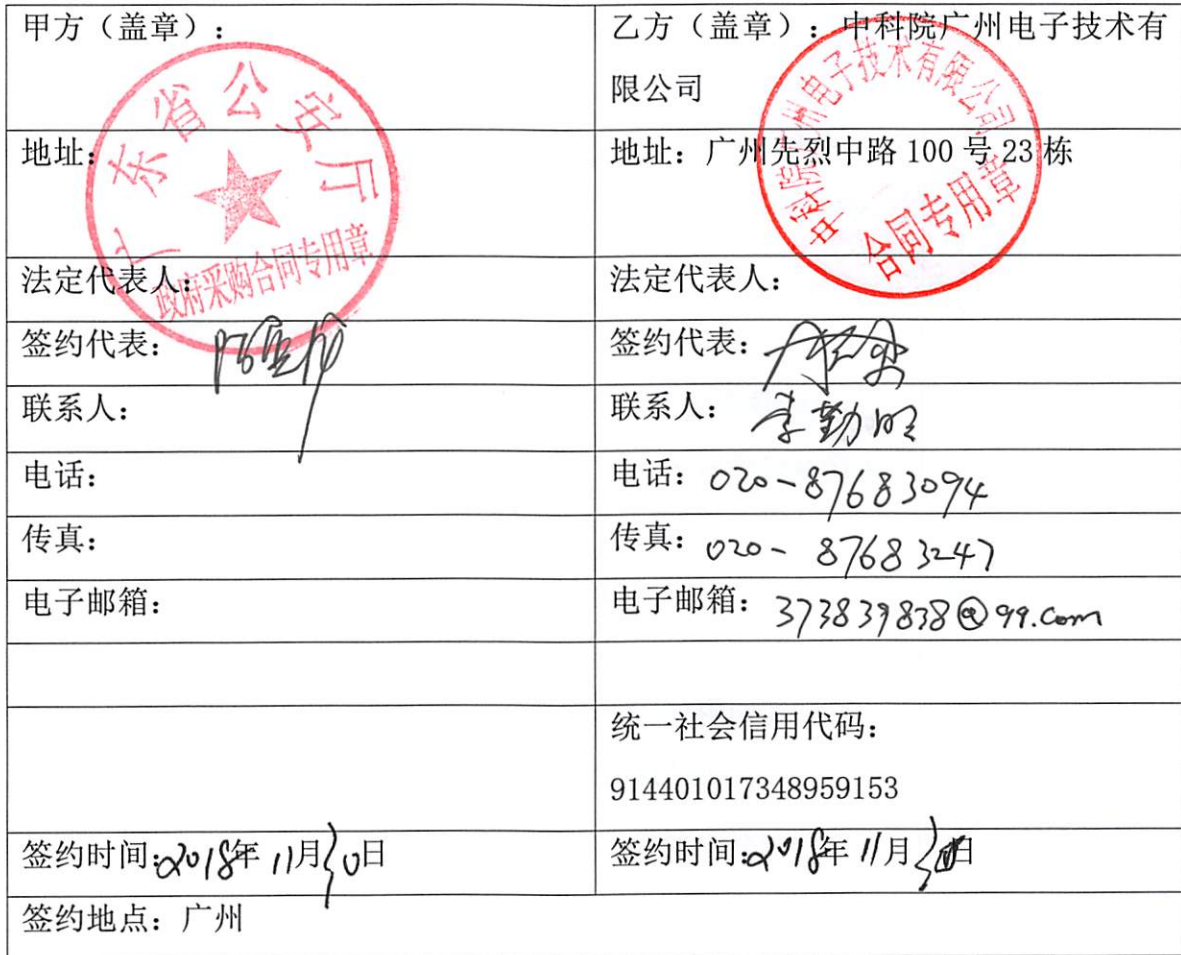 甲方（盖章）：
广东省公安厅
政府采购合同专用章
乙方（盖章）：中科院广州电子技术有
限公司
中科院广州电子技术有限公司
合同专用章
地址：
地址：广州先烈中路 100 号 23 栋
法定代表人：
法定代表人：
签约代表：
签约代表：
联系人：
联系人：李勤明
电话：
电话：020-87683094
传真：
传真：020-87683247
电子邮箱：
电子邮箱：373839838@qq.com
统一社会信用代码：
914401017348959153
签约时间：2018年11月30日
签约时间：2018年11月30日
签约地点：广州